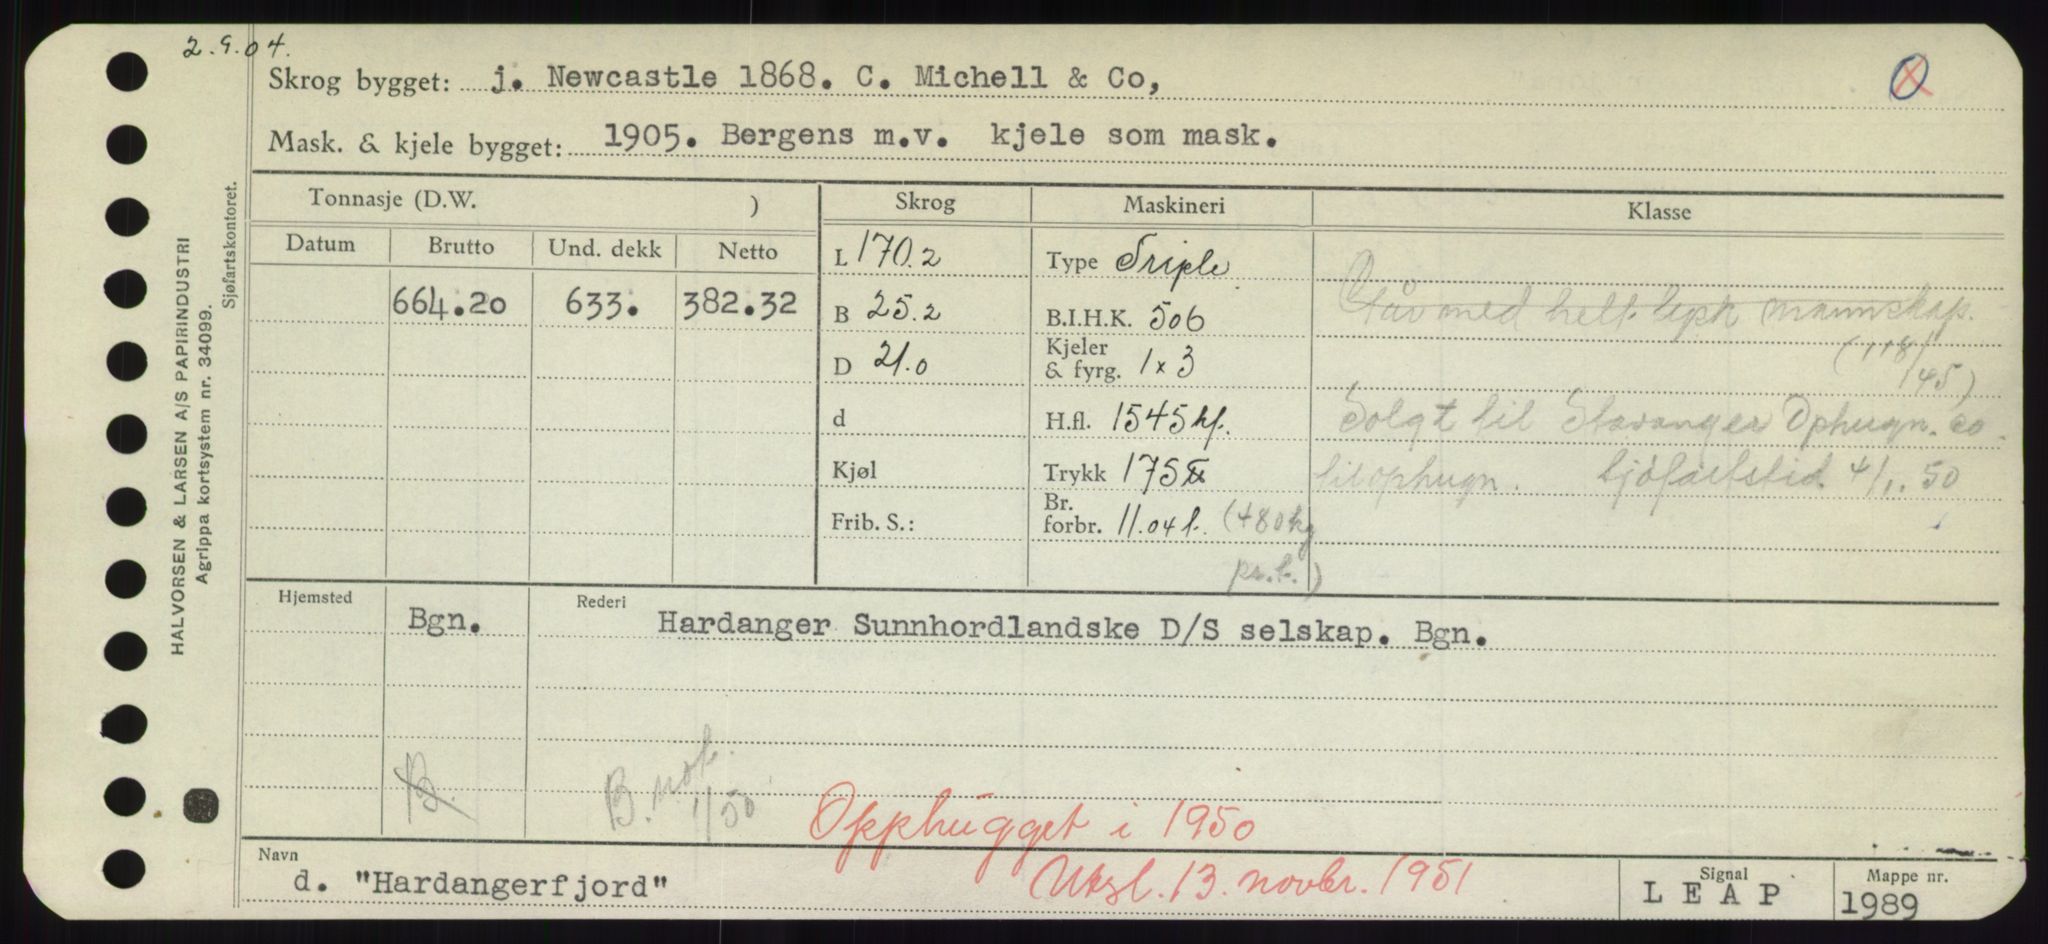 2.9.04.
Skrog bygget: j. Newcastle 1868. C. Michell & Co,
Mask. & kjele bygget: 1905. Bergens m.v. kjele som mask.
Tonnasje (D.W. ) Skrog Maskineri Klasse
Datum Brutto Und. dekk Netto
664.20 633. 382.32
L 170.2
B 25.2
D 21.0
d
Kjøl
Frib. S.:
Type Triple
B.I.H.K. 506
Kjeler
& fyrg. 1x3
H.fl. 1545 hf.
Trykk 175
Br.
forbr. 11.04 t. (480 kg
pr. t.)
med helt mannskap.
(11 8/45)
Solgt til Stavanger Ophugn. co.
til ophugn. Sjöfartstid. 4/1. 50
Hjemsted Bgn. Rederi Hardanger Sunnhordlandske D/S selskap. Bgn.
B.
B. not. 1/50
Opphugget i 1950
Navn d. "Hardangerfjord"
Utsl. 13. novbr. 1951
Signal LEAP
Mappe nr. 1989
HALVORSEN & LARSEN A/S PAPIRINDUSTRI
Agrippa kortsystem nr. 34099.
Sjøfartskontoret.